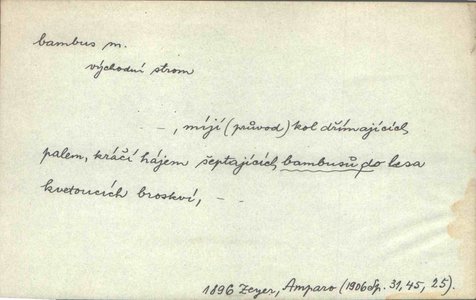 bambus m.
východní strom
– , míjí (průvod) kol dřímajících
palem, kráčí hájem šeptajících bambusů do lesa
kvetoucích broskví, – –
1896 Zeyer, Amparo (1906 Sp. 31, 45, 25).